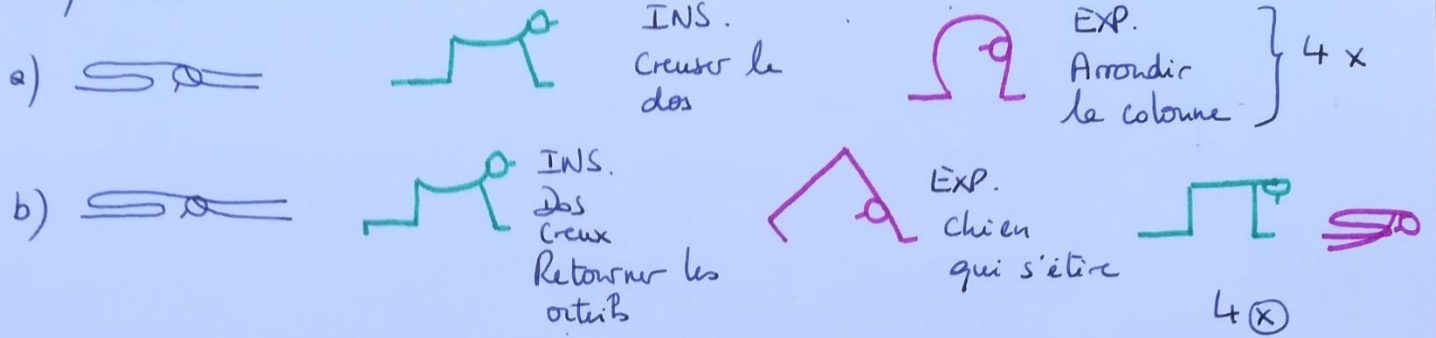 a)
INS.
Creuser le
dos
EXP.
Arrondir
la colonne
4 x
b)
INS.
Dos
Creux
Retourner les
orteils
EXP.
Chien
qui s'étire
4 x